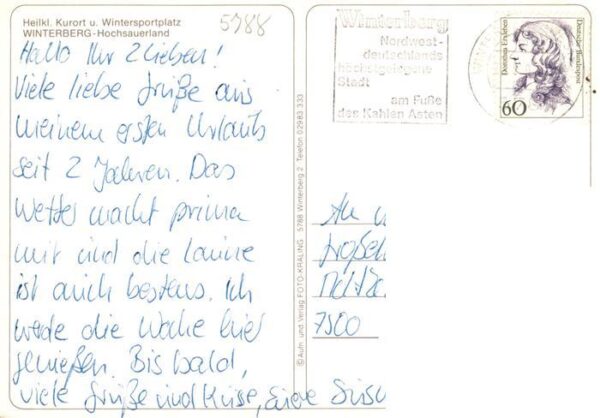 Heilkl. Kurort u. Wintersportplatz
WINTERBERG-Hochsauerland
5788
Hallo Ihr 2 Lieben!
Viele liebe Grüße aus
meinem ersten Urlaub
seit 2 Jahren. Das
Wetter macht prima
mit und die Laune
ist auch bestens. Ich
werde die Woche hier
genießen. Bis bald,
viele Grüße und Küsse, Eure
© Aufn. und Verlag FOTO-KRALING 5788 Winterberg 2 Telefon 02983 333
Winterberg
Nordwest-
deutschlands
höchstgelegene
Stadt
am Fuße
des Kahlen Asten
Dorothea Erxleben
Deutsche Bundespost
60
An
7500